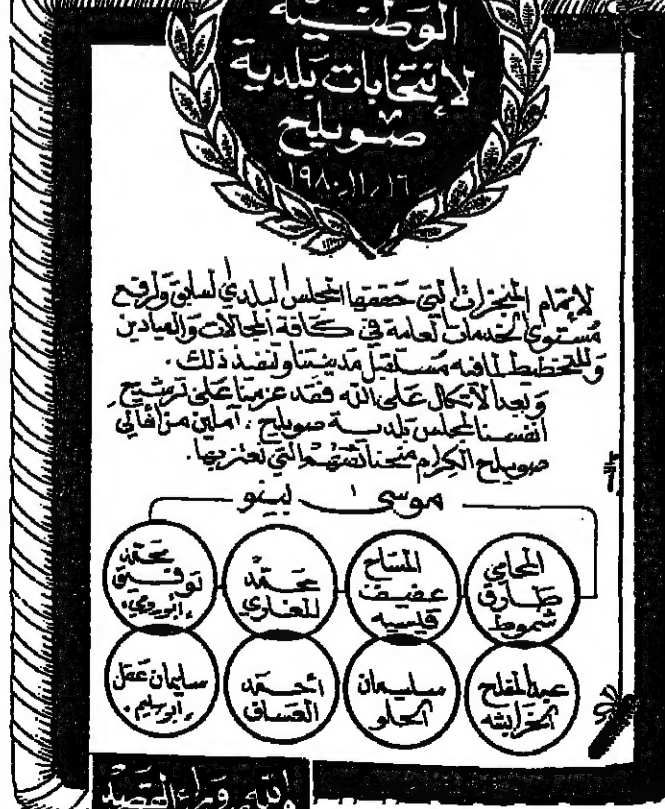 الوطنية
لإنتخابات بلدية
صويلح
١٩٨٠/١١/١٦
لإتمام المنجزات التي حققها المجلس البلدي السابق ولرفع
مستوى الخدمات العامة في كافة المجالات والميادين
وللتخطيط لما فيه مستقبل مدينتنا ولتنفيذ ذلك.
وبعد الاتكال على الله فقد عزمنا على ترشيح
انفسنا لمجلس بلدية صويلح، آملين من أهالي
صويلح الكرام منحنا ثقتهم التي نعتز بها.
موسى بينو
المحامي طارق شموط
المساح عفيف قيسيه
محمد المعاري
محمد توفيق
عبد المفلح الخرابشه
سليمان الحلو
أحمد العساف
سليمان عقل "ابو سليم"
والله وراء القصد